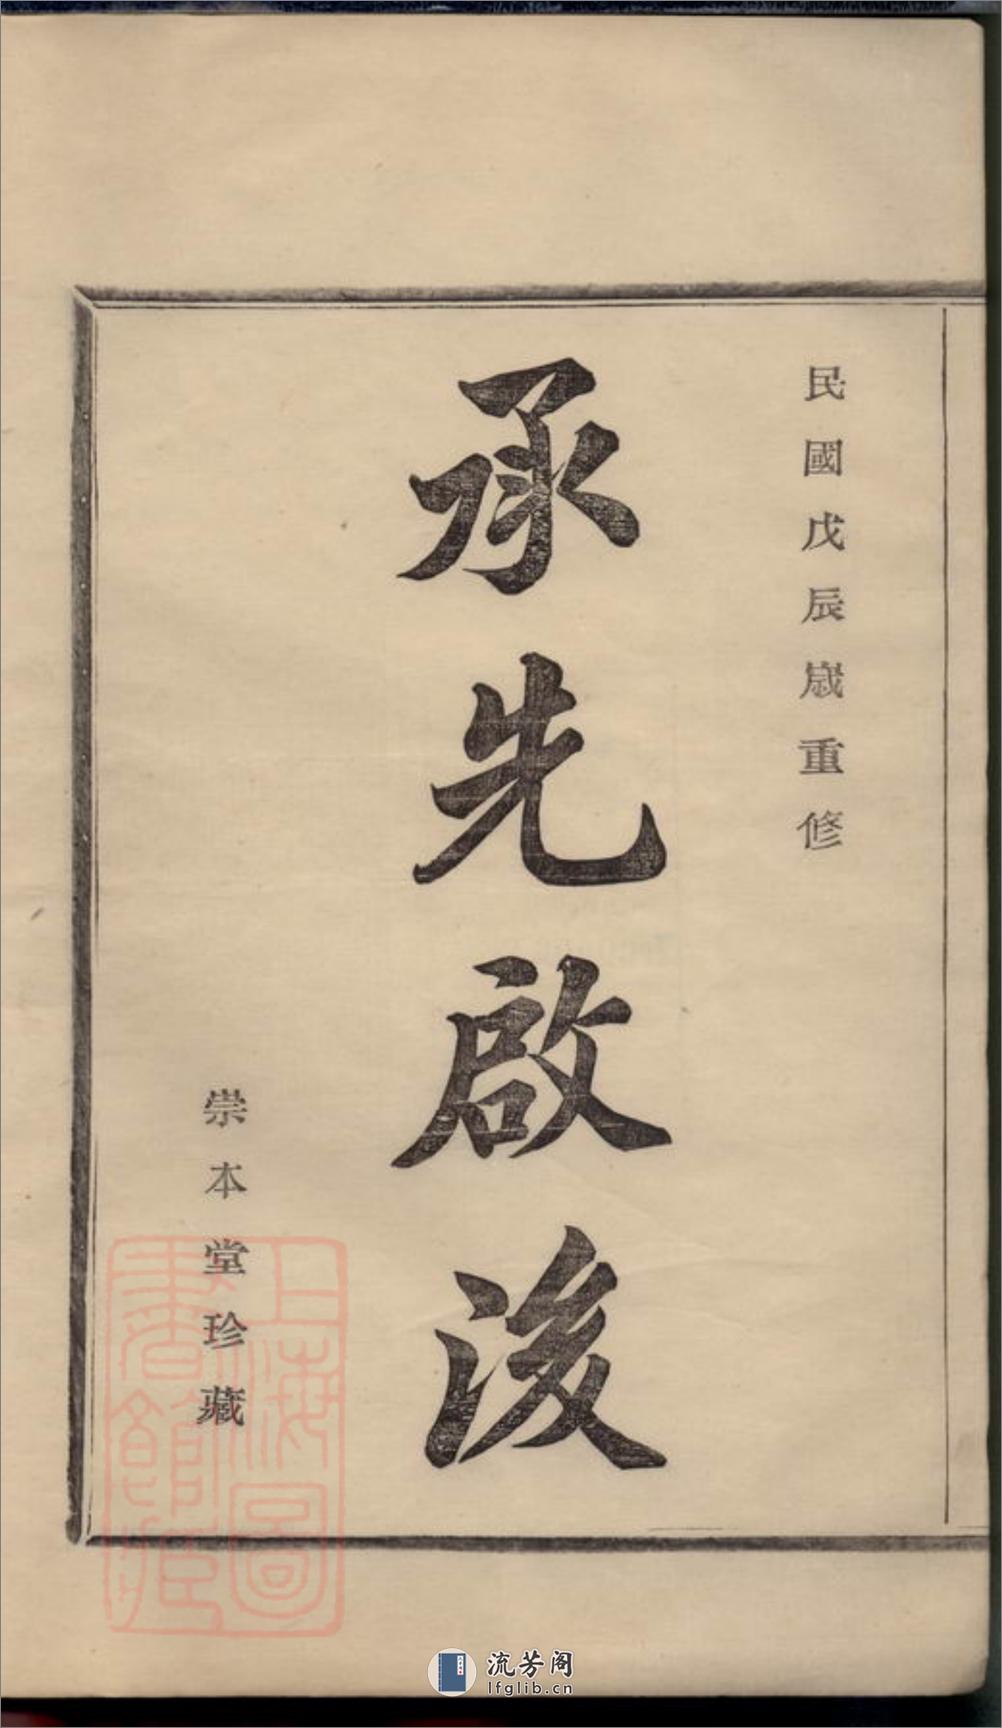 民國戊辰歲重修
承先啟後
崇本堂珍藏
上海圖
書館藏
流芳阁
lfglib.cn